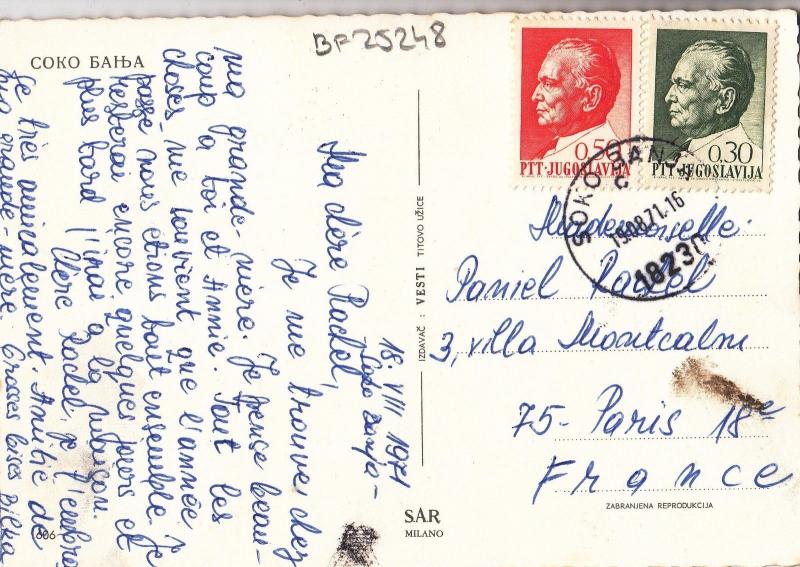 BF25248
СОКО БАЊА
18. VIII 1971
Soko Banja -
Ma chère Rachel,
Je me trouve chez
ma grande-mère. Je pense beau-
coup à toi et Annie. Tout les
choses me souvient que l'année
passé nous étions tout ensemble. Je
resterai encore quelques jours et
plus tard j'irai a la maison.
Chère Rachel, je t'embra
se très amicalement. Amitié de
ma grande-mère. Grosses bises
606
IZDAVAČ : VESTI TITOVO UŽICE
SAR
MILANO
0.50
PTT·JUGOSLAVIJA
0.30
PTT·JUGOSLAVIJA
SOKO BANJA
19.08.71.16
18230
Mademoiselle
Daniel Rachel
3, villa Montcalm
75-Paris 18e
France
ZABRANJENA REPRODUKCIJA